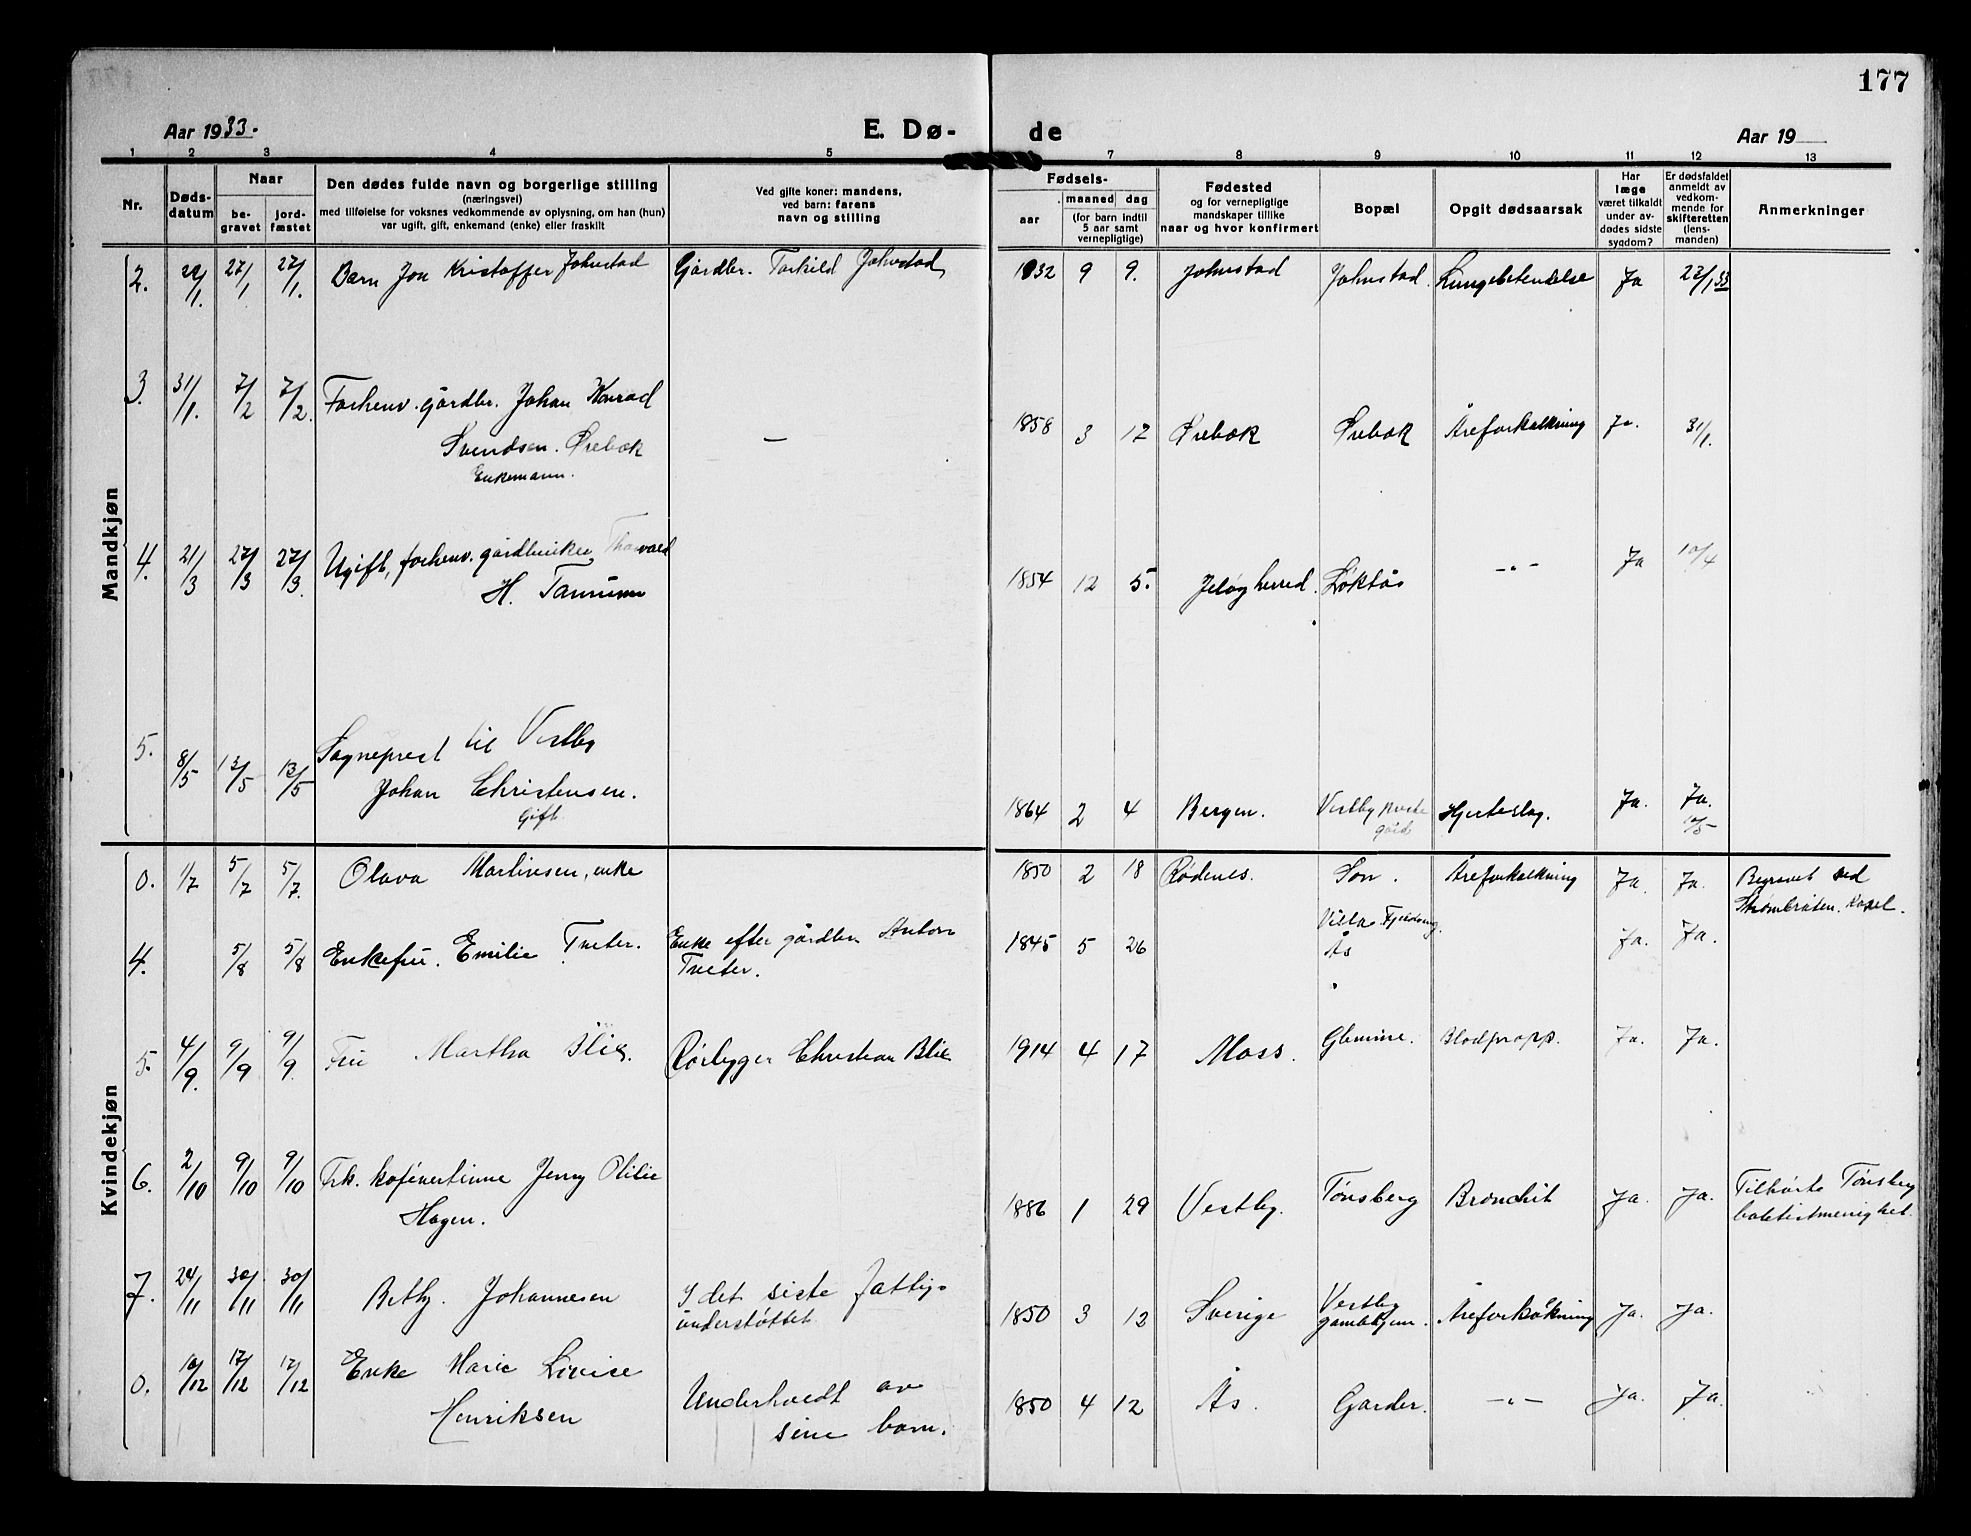 177
Aar 1933.
E. Dø-
de
Aar 19
1 2 3 4 5 7 8 9 10 11 12 13
Nr.
Døds-
datum
Naar
be-
gravet
jord-
fæstet
Den dødes fulde navn og borgerlige stilling
(næringsvei)
med tilføielse for voksnes vedkommende av oplysning, om han (hun)
var ugift, gift, enkemand (enke) eller fraskilt
Ved gifte koner: mandens,
ved barn: farens
navn og stilling
Fødsels-
aar
maaned dag
(for barn indtil
5 aar samt
vernepligtige)
Fødested
og for vernepligtige
mandskaper tillike
naar og hvor konfirmert
Bopæl
Opgit dødsaarsak
Har
læge
været tilkaldt
under av-
dødes sidste
sygdom?
Er dødsfaldet
anmeldt av
vedkom-
mende for
skifteretten
(lens-
manden)
Anmerkninger
Mandkjøn
2. 27/1 27/1. Barn Jon Kristoffer Johnstad Gårdbr. Torkild Johnstad 1932 9 9. Johnstad Johnstad. Lungebetendelse Ja 27/1 33
3. 31/1. 7/2 7/2. Forhenv. gårdbr. Johan Konrad
Svendsen. Ørebæk
Enkemann.
— 1858 3 17 Ørebæk Ørebæk Åreforkalkning Ja. 31/1.
4. 21/3 27/3 27/3. Ugift, forhenv. gårdbruker Thorvald
H. Tanum
1854 12 5. Jeløy herred. Løktås -"- Ja 10/4
5. 8/5 13/5 13/5 Sogneprest til Vestby
Johan Christensen.
Gift.
1864 2 4 Bergen. Vestby preste
gård
Hjerteslag. Ja. Ja.
10/5
Kvindekjøn
0. 1/7 5/7 5/7. Olava Martinsen, enke 1850 2 18 Rødenes. Son. Åreforkalkning Ja. Ja. Begravet ved
Strømbråten. Kapel.
4. 5/8 5/8 Enkefru. Emilie Tveter. Enke efter gårdbr. Anton
Tveter.
1845 5 26 Villa
Ås
Ja. Ja.
5. 4/9. 9/9 9/9. Fru Martha Blix. Rørlegger Christian Blix 1914 4 17 Moss. Glemmne. Blodpropp. Ja. Ja.
6. 2/10 9/10 9/10 Frk. kasjererinne Jenny Otilie
Hagen.
1886 1 29 Vestby. Tønsberg Bronchit Ja. Ja. Tilhørte Tønsberg
baptistmenighet.
7. 24/11 30/11 30/11 Bethy. Johannesen I det siste fattigs
understøttet
1850 3 12 Sverige Vestby
gamlehjem.
Åreforkalkning Ja. Ja.
0. 10/12 17/12 17/12 Enke Marie Lovise
Henriksen
Underholdt av
sine barn.
1850 4 12 Ås. Garder. -"- Ja. Ja.